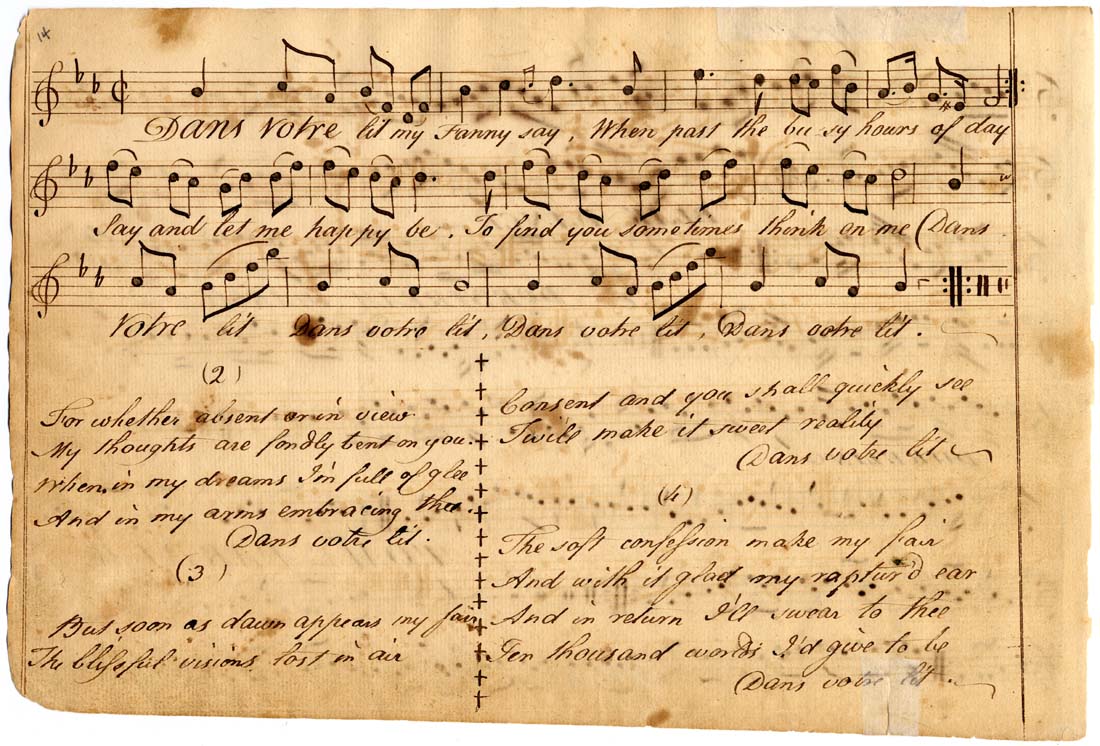 14
Dans Votre lit my Fanny say, When past the bu sy hours of day
Say and let me happy be, To find you sometimes think on me (Dans
Votre lit Dans votre lit, Dans votre lit, Dans votre lit.
(2)
For whether absent or in view
My thoughts are fondly bent on you.
When in my dreams I'm full of glee
And in my arms embracing thee.
Dans votre lit.
(3)
But soon as dawn appears my fair
The blissful visions lost in air
Consent and you shall quickly see
Twill make it sweet reality
Dans votre lit
(4)
The soft confession make my fair
And with it glad my raptur'd ear
And in return I'll swear to thee
Ten thousand words I'd give to be
Dans votre lit.